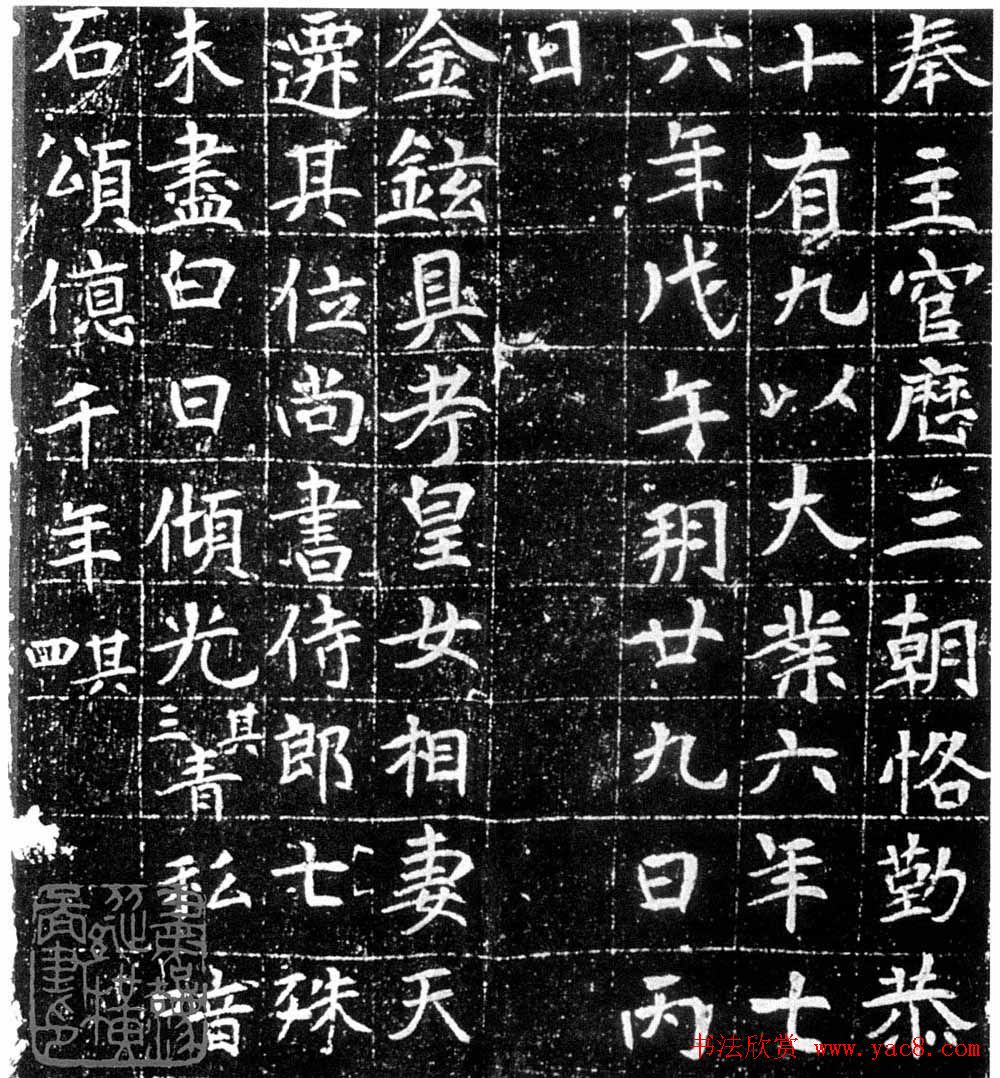 奉主官歷三朝恪勤恭
十有九以大業六年十
六年戊午朔廿九日丙
日
金鉉具考皇女相妻天
遷其位尚書侍郎七殊
未盡白日傾光其三青私音
石頌億千年其四
书法欣赏 www.yac8.com